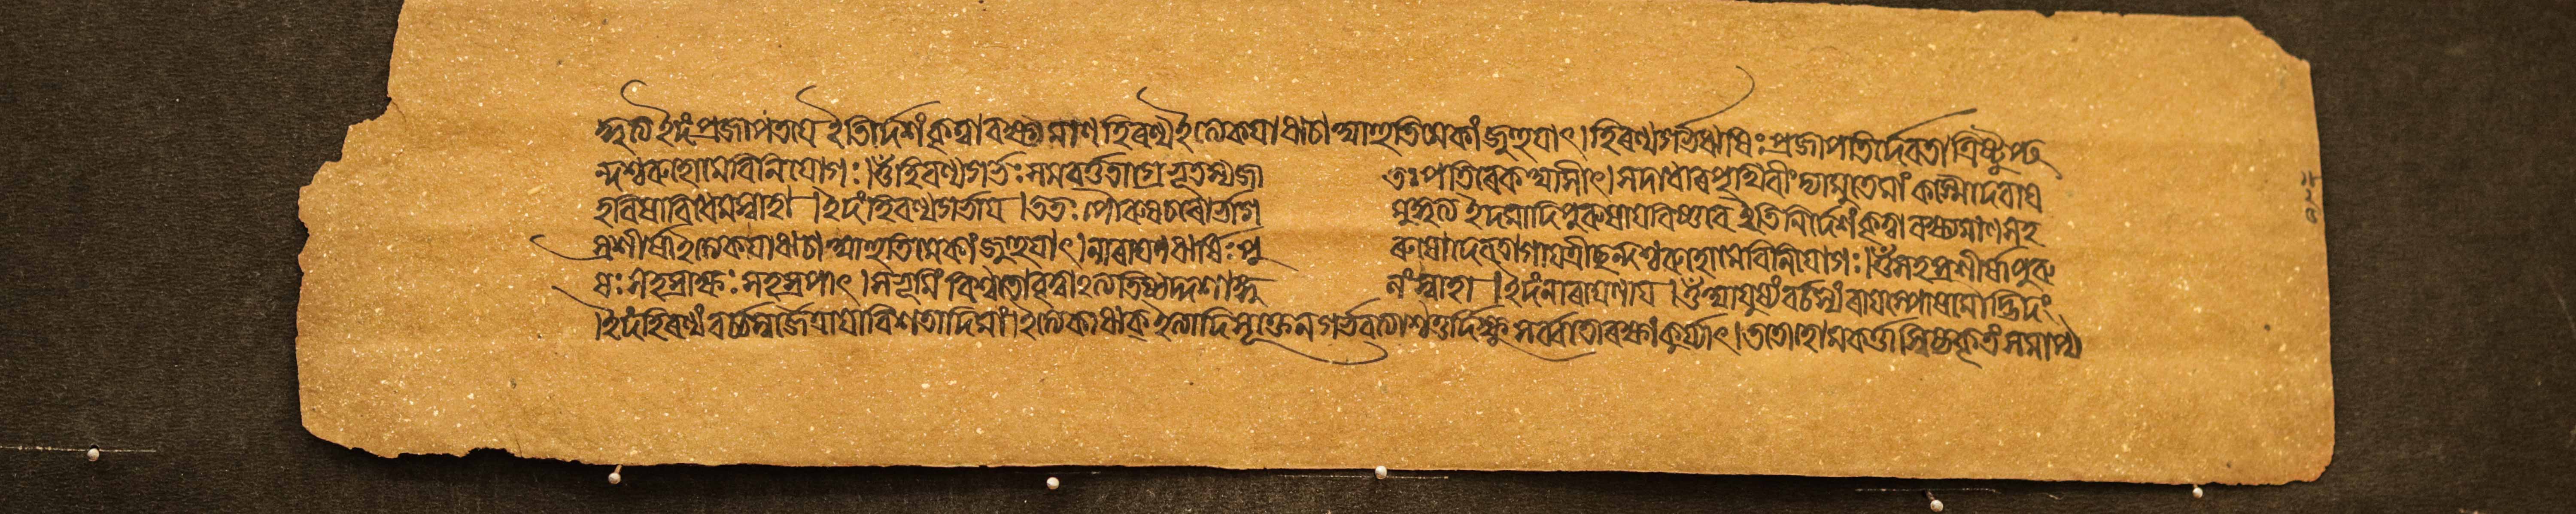 ন্মূলে ইদং প্ৰজাপতয়ে ইতি নিৰ্দ্দেশং কৃত্বা বক্ষ্যমাণ হিৰণ্য ইত্যেকয়া ঋচা আহুতিমেকাং জুহুয়াৎ। হিৰণ্যগৰ্ভঋষিঃ প্ৰজাপতিৰ্দেৱতা ত্ৰিষ্টুপ্ছ
ন্দশ্চৰুহোমে বিনিয়োগঃ। ওঁ হিৰণ্যগৰ্ভঃ সমৱৰ্ত্ততাগ্ৰে ভূতস্য জা তঃ পতিৰেক আসীৎ। সদাধাৰ পৃথিবীং দ্যামুতেমাং কস্মৈ দেৱায়
হৱিষা বিধেম স্বাহা। ইদং হিৰণ্যগৰ্ভায়। ততঃ পৌৰুষ চৰোৰ্ভাগ ইদমাদিপুৰুষায় বিষ্ণৱে ইতি নিৰ্দ্দেশং কৃত্বা বক্ষ্যমাণ সহ
স্ৰশীৰ্ষা ইত্যেকয়া ঋচা আহুতিমেকাং জুহুয়াৎ। নাৰায়ণ ঋষিঃ পু ৰুষো দেৱতা গায়ত্ৰীছন্দশ্চৰুহোমে বিনিয়োগঃ। ওঁ সহস্ৰশীৰ্ষা পুৰু
ষঃ সহস্ৰাক্ষঃ সহস্ৰপাৎ। স ভূমিং বিশ্বতো বৃত্বাঽত্যতিষ্ঠদ্দশাঙ্গু লং স্বাহা। ইদং নাৰায়ণায়। ওঁ আয়ুষ্যং বৰ্চস্যং ৰায়স্পোষমৌদ্ভিদং
। ইদং হিৰণ্যং বৰ্চস্বজ্জৈত্ৰায়াবিশতাদিমাং। ইত্যেকা ঋক্ ইত্যাদি সূক্তেন গৰ্ভৱত্যাশ্চতুৰ্দিক্ষু সৰ্বতো ৰক্ষাং কুৰ্য্যাৎ। ততো হোমকৰ্ত্তা স্বিষ্টকৃতং সমাপ্য